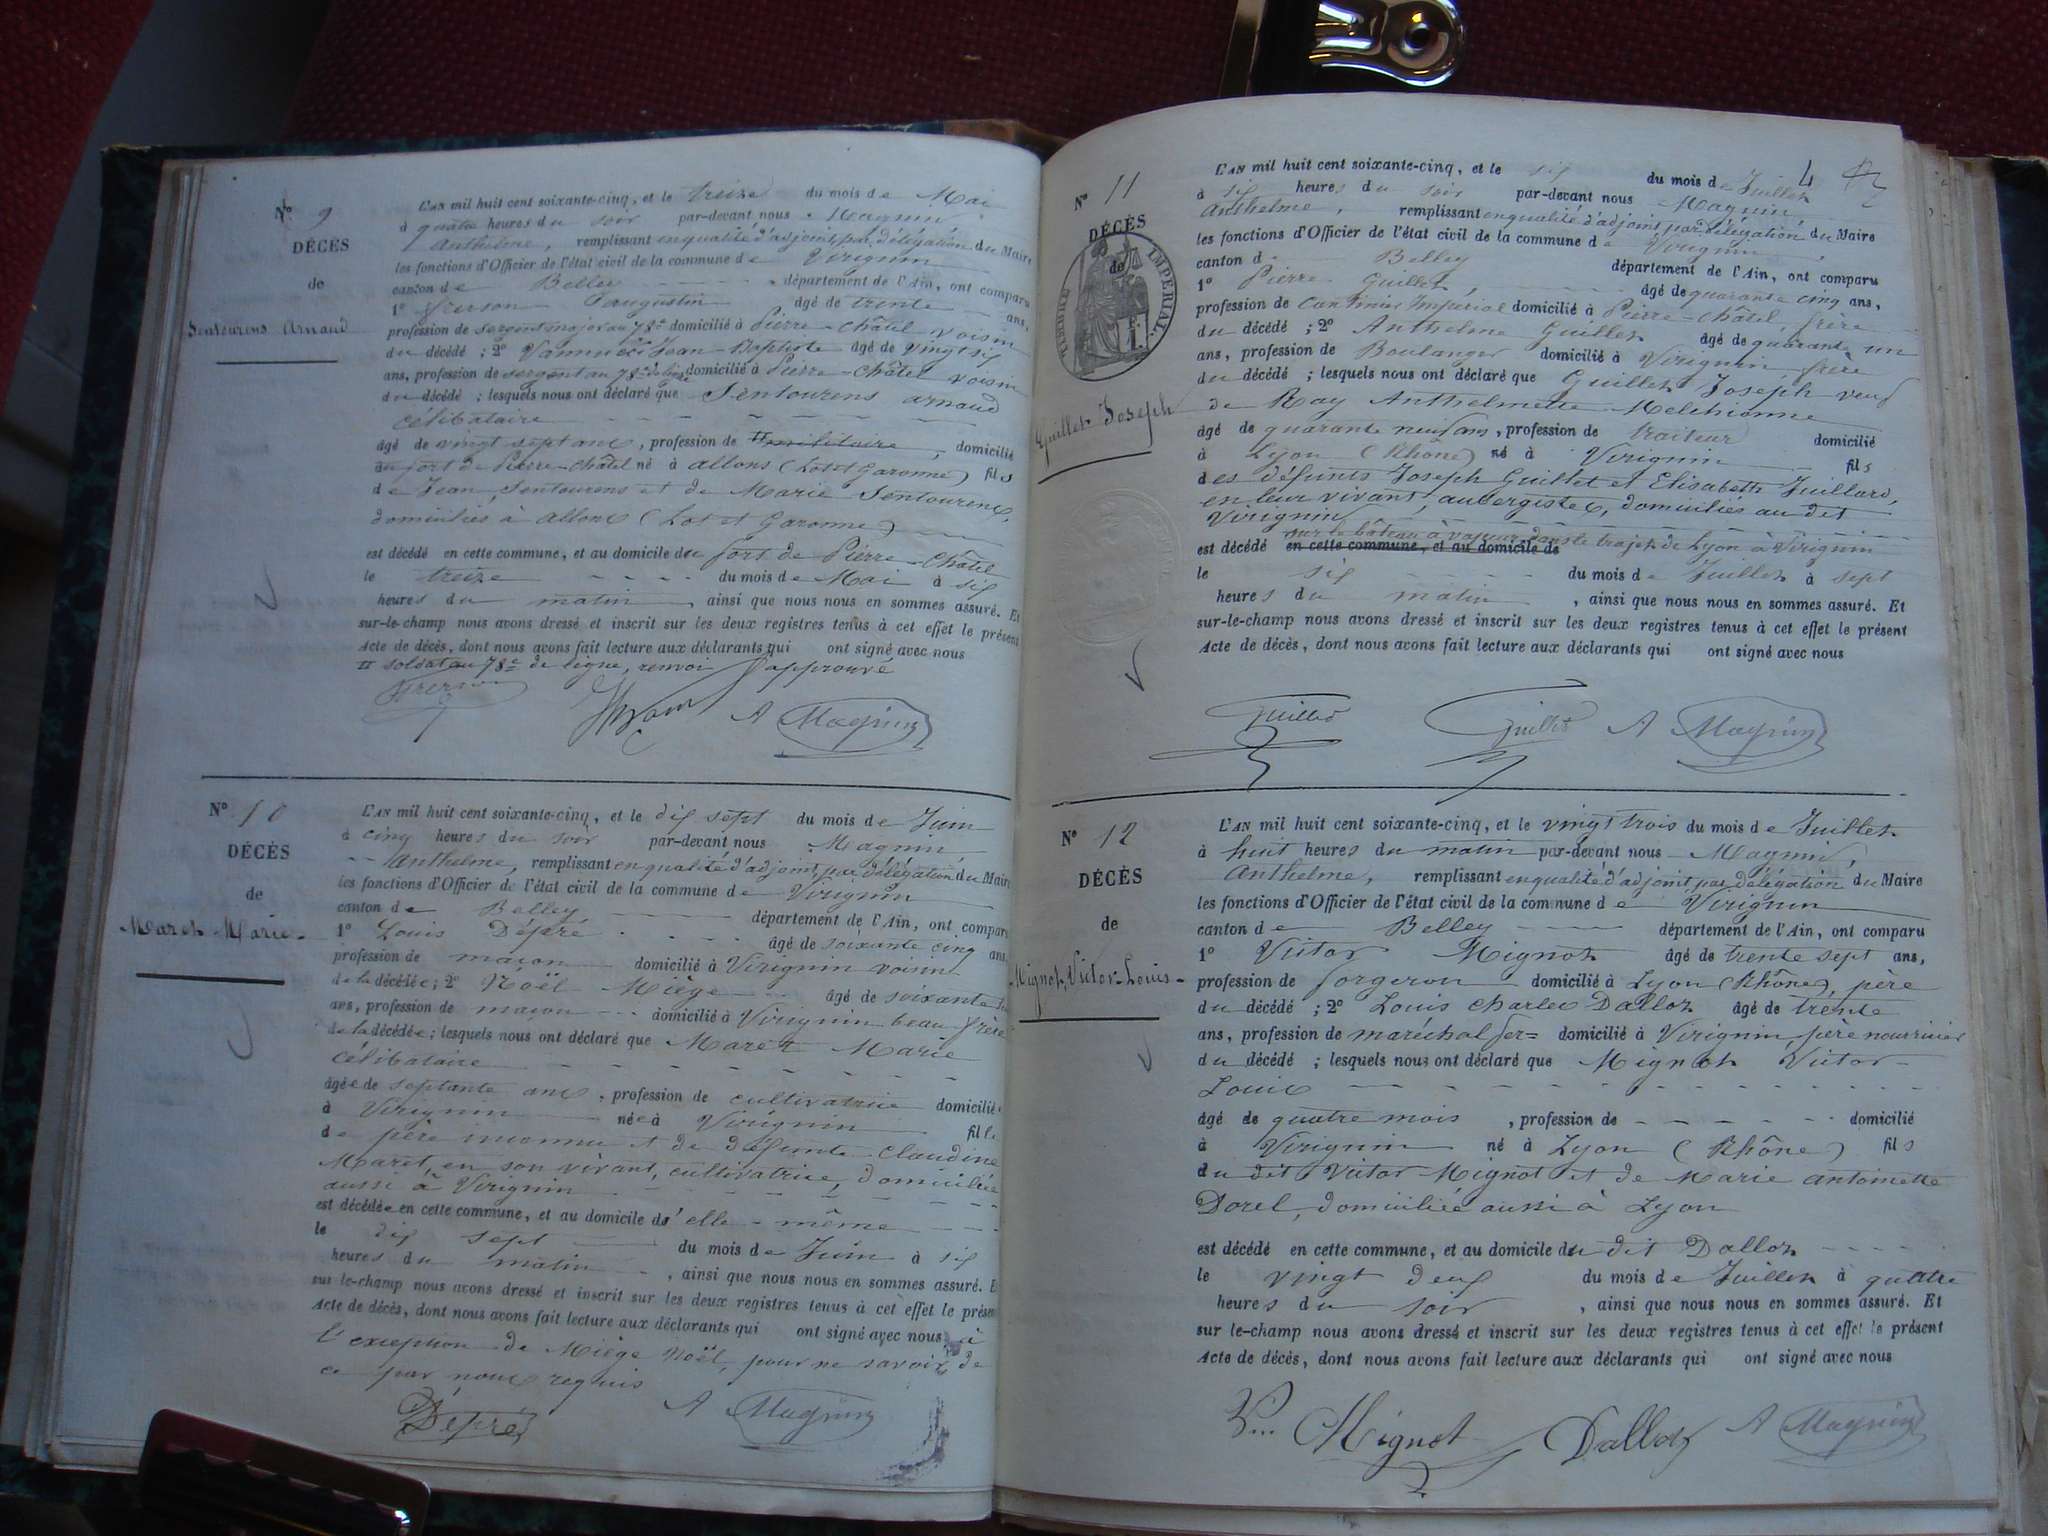 N° 9
DÉCÈS
de
Sentourens Arnaud
L'AN mil huit cent soixante-cinq, et le treize du mois de Mai
à quatre heures du soir par-devant nous Magnin
Anthelme, remplissant en qualité d'adjoint, par délégation du Maire
les fonctions d'Officier de l'état civil de la commune de Virignin
canton de Belley département de l'Ain, ont comparu
1° Frerson Augustin âgé de trente ans,
profession de sergent major au 78e domicilié à Pierre-Châtel voisin
du décédé ; 2° Jean-Baptiste âgé de vingt six
ans, profession de sergent au 78e de ligne domicilié à Pierre-Châtel voisin
du décédé ; lesquels nous ont déclaré que Sentourens Arnaud
célibataire
âgé de vingt sept ans, profession de militaire, domicilié
au fort de Pierre-Châtel né à Allons (Lot et Garonne) fils
de Jean Sentourens et de Marie Sentourens,
domiciliés à Allons (Lot et Garonne)
est décédé en cette commune, et au domicile du fort de Pierre-Châtel
le treize du mois de Mai à six
heures du matin, ainsi que nous nous en sommes assuré. Et
sur-le-champ nous avons dressé et inscrit sur les deux registres tenus à cet effet le présent
Acte de décès, dont nous avons fait lecture aux déclarants qui ont signé avec nous
soldat au 78e de ligne, renvoi approuvé
Frerson A Magnin
N° 10
DÉCÈS
de
Maret Marie
L'AN mil huit cent soixante-cinq, et le dix sept du mois de Juin
à cinq heures du soir par-devant nous Magnin
Anthelme, remplissant en qualité d'adjoint, par délégation du Maire
les fonctions d'Officier de l'état civil de la commune de Virignin
canton de Belley département de l'Ain, ont comparu
1° Louis Dépré âgé de soixante cinq ans
profession de maçon domicilié à Virignin voisin
de la décédée ; 2° Noël Miège âgé de soixante
ans, profession de maçon domicilié à Virignin beau-frère
de la décédée ; lesquels nous ont déclaré que Maret Marie
célibataire
âgée de septante ans, profession de cultivatrice domiciliée
à Virignin née à Virignin fille
de père inconnu et de défunte Claudine
Maret, en son vivant, cultivatrice, domiciliée
aussi à Virignin
est décédée en cette commune, et au domicile d'elle-même
le dix sept du mois de Juin à six
heures du matin, ainsi que nous nous en sommes assuré. Et
sur-le-champ nous avons dressé et inscrit sur les deux registres tenus à cet effet le présent
Acte de décès, dont nous avons fait lecture aux déclarants qui ont signé avec nous à
l'exception de Miège Noël, pour ne savoir, de
ce par nous requis
Dépré A Magnin
4
N° 11
DÉCÈS
de
IMPÉRIAL
Guillet Joseph
L'AN mil huit cent soixante-cinq, et le six du mois de Juillet
à six heures du soir par-devant nous Magnin,
Anthelme, remplissant en qualité d'adjoint, par délégation du Maire
les fonctions d'Officier de l'état civil de la commune de Virignin,
canton de Belley département de l'Ain, ont comparu
1° Pierre Guillet, âgé de quarante cinq ans,
profession de Cantinier Impérial domicilié à Pierre-Châtel, frère
du décédé ; 2° Anthelme Guillet âgé de quarante un
ans, profession de Boulanger domicilié à Virignin, frère
du décédé ; lesquels nous ont déclaré que Guillet Joseph veuf
de Ray Anthelmette Melchionne
âgé de quarante neuf ans, profession de traiteur domicilié
à Lyon (Rhône) né à Virignin fils
des défunts Joseph Guillet et Elisabeth Juillard,
en leur vivant, aubergistes, domiciliés au dit
Virignin
sur le bâteau à vapeur dans le trajet de Lyon à Virignin
est décédé en cette commune, et au domicile de
le six du mois de Juillet à sept
heures du matin, ainsi que nous nous en sommes assuré. Et
sur-le-champ nous avons dressé et inscrit sur les deux registres tenus à cet effet le présent
Acte de décès, dont nous avons fait lecture aux déclarants qui ont signé avec nous
Guillet Guillet A Magnin
N° 12
DÉCÈS
de
Mignot, Victor-Louis
L'AN mil huit cent soixante-cinq, et le vingt trois du mois de Juillet
à huit heures du matin par-devant nous Magnin,
Anthelme, remplissant en qualité d'adjoint par délégation du Maire
les fonctions d'Officier de l'état civil de la commune de Virignin
canton de Belley département de l'Ain, ont comparu
1° Victor Mignot âgé de trente sept ans,
profession de forgeron domicilié à Lyon (Rhône), père
du décédé ; 2° Louis Charles Dalloz âgé de trente
ans, profession de maréchal fer= domicilié à Virignin, père nourricier
du décédé ; lesquels nous ont déclaré que Mignot Victor
Louis
âgé de quatre mois, profession de domicilié
à Virignin né à Lyon (Rhône) fils
du dit Victor Mignot et de Marie Antoinette
Dorel, domiciliée aussi à Lyon
est décédé en cette commune, et au domicile du dit Dalloz
le vingt deux du mois de Juillet à quatre
heures du soir, ainsi que nous nous en sommes assuré. Et
sur le-champ nous avons dressé et inscrit sur les deux registres tenus à cet effet le présent
Acte de décès, dont nous avons fait lecture aux déclarants qui ont signé avec nous
Mignot Dalloz A Magnin